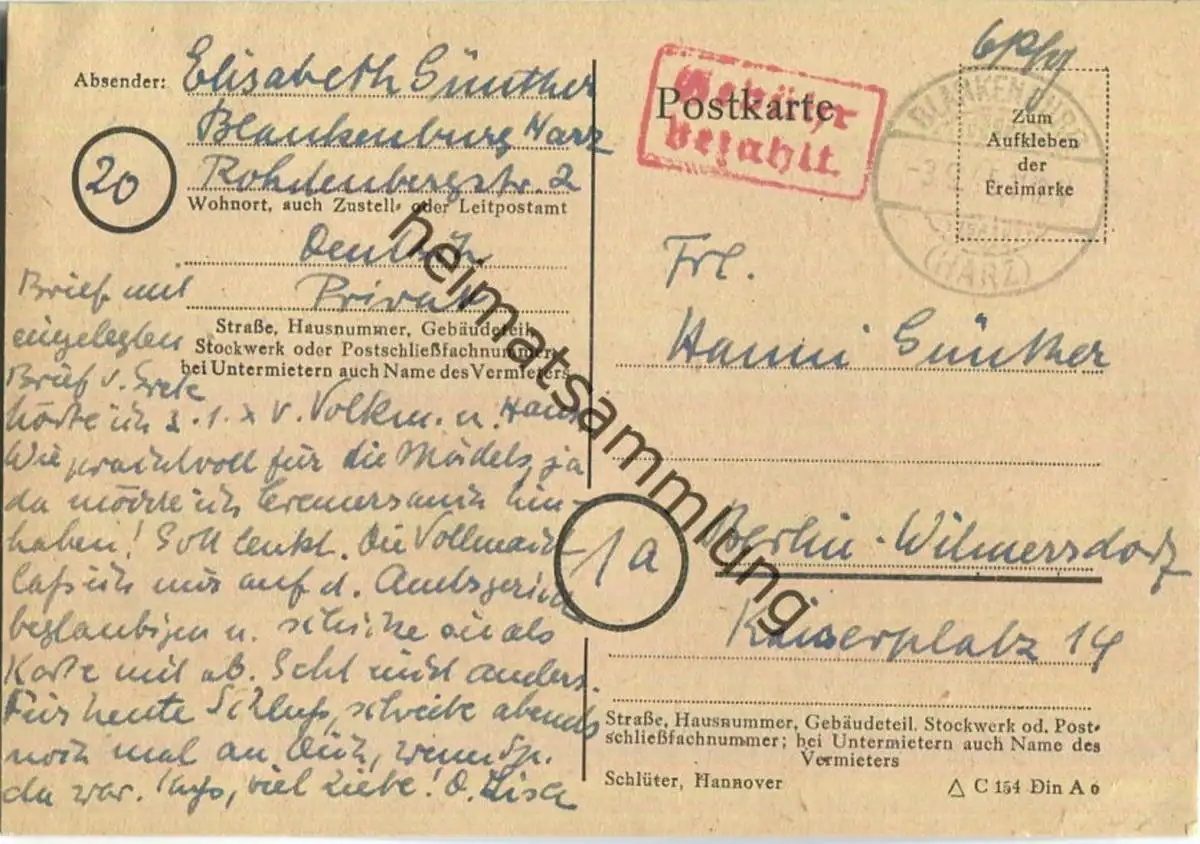 Absender: Elisabeth Günther
Blankenburg Harz
Rohdenbergstr. 2
20
Wohnort, auch Zustell- oder Leitpostamt
Deutsch
Privat
Straße, Hausnummer, Gebäudeteil,
Stockwerk oder Postschließfachnummer;
bei Untermietern auch Name des Vermieters
Brief mit
eingelegten
Brief v. Grete
hörte ich v. Volkm. u. Hans
Wie prachtvoll für die Mädels, ja
da möchte ich hin-
haben! Gott lenkt. Die Vollmacht
laß ich mir auf d. Amtsgericht
beglaubigen u. schicke sie als
Karte mit ab. Geht nicht anders.
Für heute Schluß, schreibe abends
noch mal an Dich, wenn
da war. Kuß, viel Liebe! D. Lisa
Postkarte
Gebühr
bezahlt.
6 Pfg
BLANKENBURG
(HARZ)
Zum
Aufkleben
der
Freimarke
Frl.
Hanni Günther
1a
Berlin-Wilmersdorf
Kaiserplatz 14
Straße, Hausnummer, Gebäudeteil. Stockwerk od. Post-
schließfachnummer; bei Untermietern auch Name des
Vermieters
Schlüter, Hannover
△ C 154 Din A 6
heimatsammlung